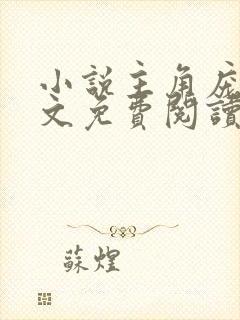 小說主角庞
文免費閱讀
蘇煌